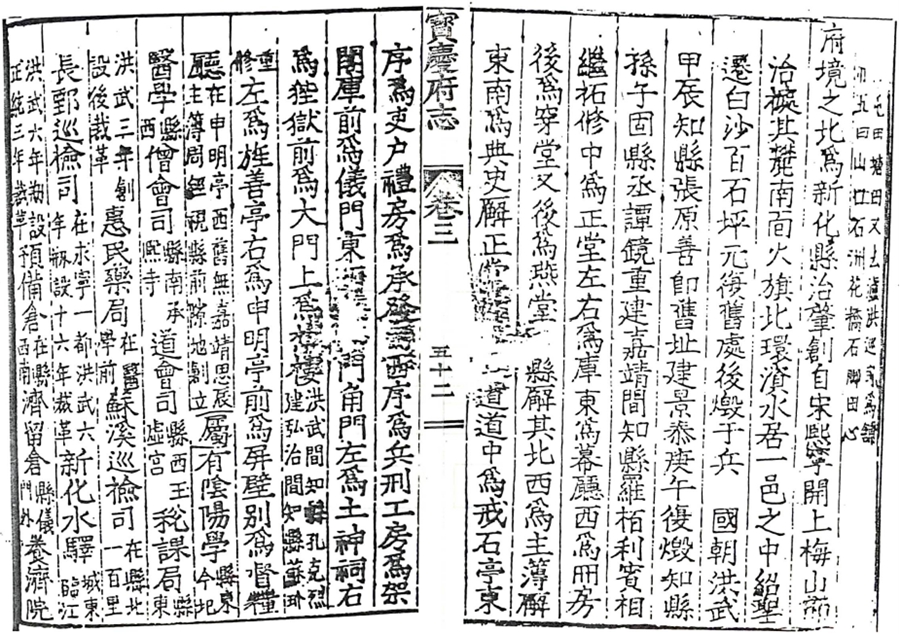 屯田塘田又去盧洪巡司為鋪
五曰山口石洲花橋石脚田心
府境之北為新化縣治肇創自宋熙寧開上梅山而
治㨿其麓南面火旗北環濱水居一邑之中紹聖
遷白沙百石坪元復舊處後燬于兵 國朝洪武
甲辰知縣張原善即舊址建景泰庚午復燬知縣
孫子固縣丞譚鏡重建嘉靖間知縣羅栢利賓相
繼拓修中為正堂左右為庫東為幕廳西為冊房
後為穿堂又後為燕堂 縣廨其北西為主薄廨
東南為典史廨正堂 道道中為戒石亭東
寶慶府志 卷三 五十二
序為吏户禮房為承發 西序為兵刑工房為架
閣庫前為儀門東 門角門左為土神祠右
為狴獄前為大門上為樓 洪武間知縣孔克烈建弘治間知縣蘇玠
重修左為旌善亭右為申明亭前為屏壁別為督糧
廳在申明亭西舊無嘉靖 辰主簿周 視縣前隙地創立屬有陰陽學縣東今北
醫學縣西僧會司縣南承熙寺道會司縣西玉虛宮稅課局縣東
洪武三年創設後裁革惠民藥局在醫學前蘇溪巡檢司在縣北一百里
長鄄巡檢司在永寧一都洪武六年刱設十六年裁革新化水驛城東臨江
洪武六年刱設正統三年裁革預備倉在縣西南濟留倉縣儀門外養濟院